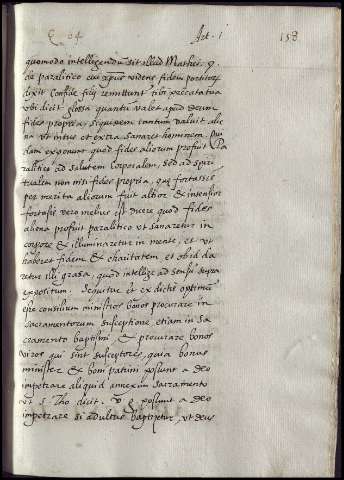 Q. 64 Art. 1 158
quomodo intelligendū sit illud Mathei. 9.
de paralitico cui xpus videns fidem portitorū
dixit Confide fili remittunt tibi peccata tua
vbi dicit glossa quantū valet apud deum
fides propria, siquidem tantum valuit alie
na vt intus et extra sanaret hominem. Qui
dam exponunt quod fides aliorum profuit Pa
ralitico ad salutem Corporalem, sed ad spiri
tualem non nisi fides propria, quę fortassis
per merita aliorum fuit &
fortassis vero melius est dicere quod fides
aliena profuit paralitico vt sanaretur in
corpore & illuminaretur in mente, et vt
haberet fidem & charitatem et ob id da
retur illi gratia, quod intellige ad sensū supra
expositum. Sequitur et ex dictis optimū
esse consilium ministros bonos procurare in
sacramentorum susceptione, etiam in sa
cramento baptismi & procurare bonos
viros qui sint susceptores, quia bonus
minister & boni patrini possunt a deo
impetrare aliquid annexum sacramento
vt s. Tho. dicit. v. g. possunt a deo
impetrare si adultus baptizetur, vt deus